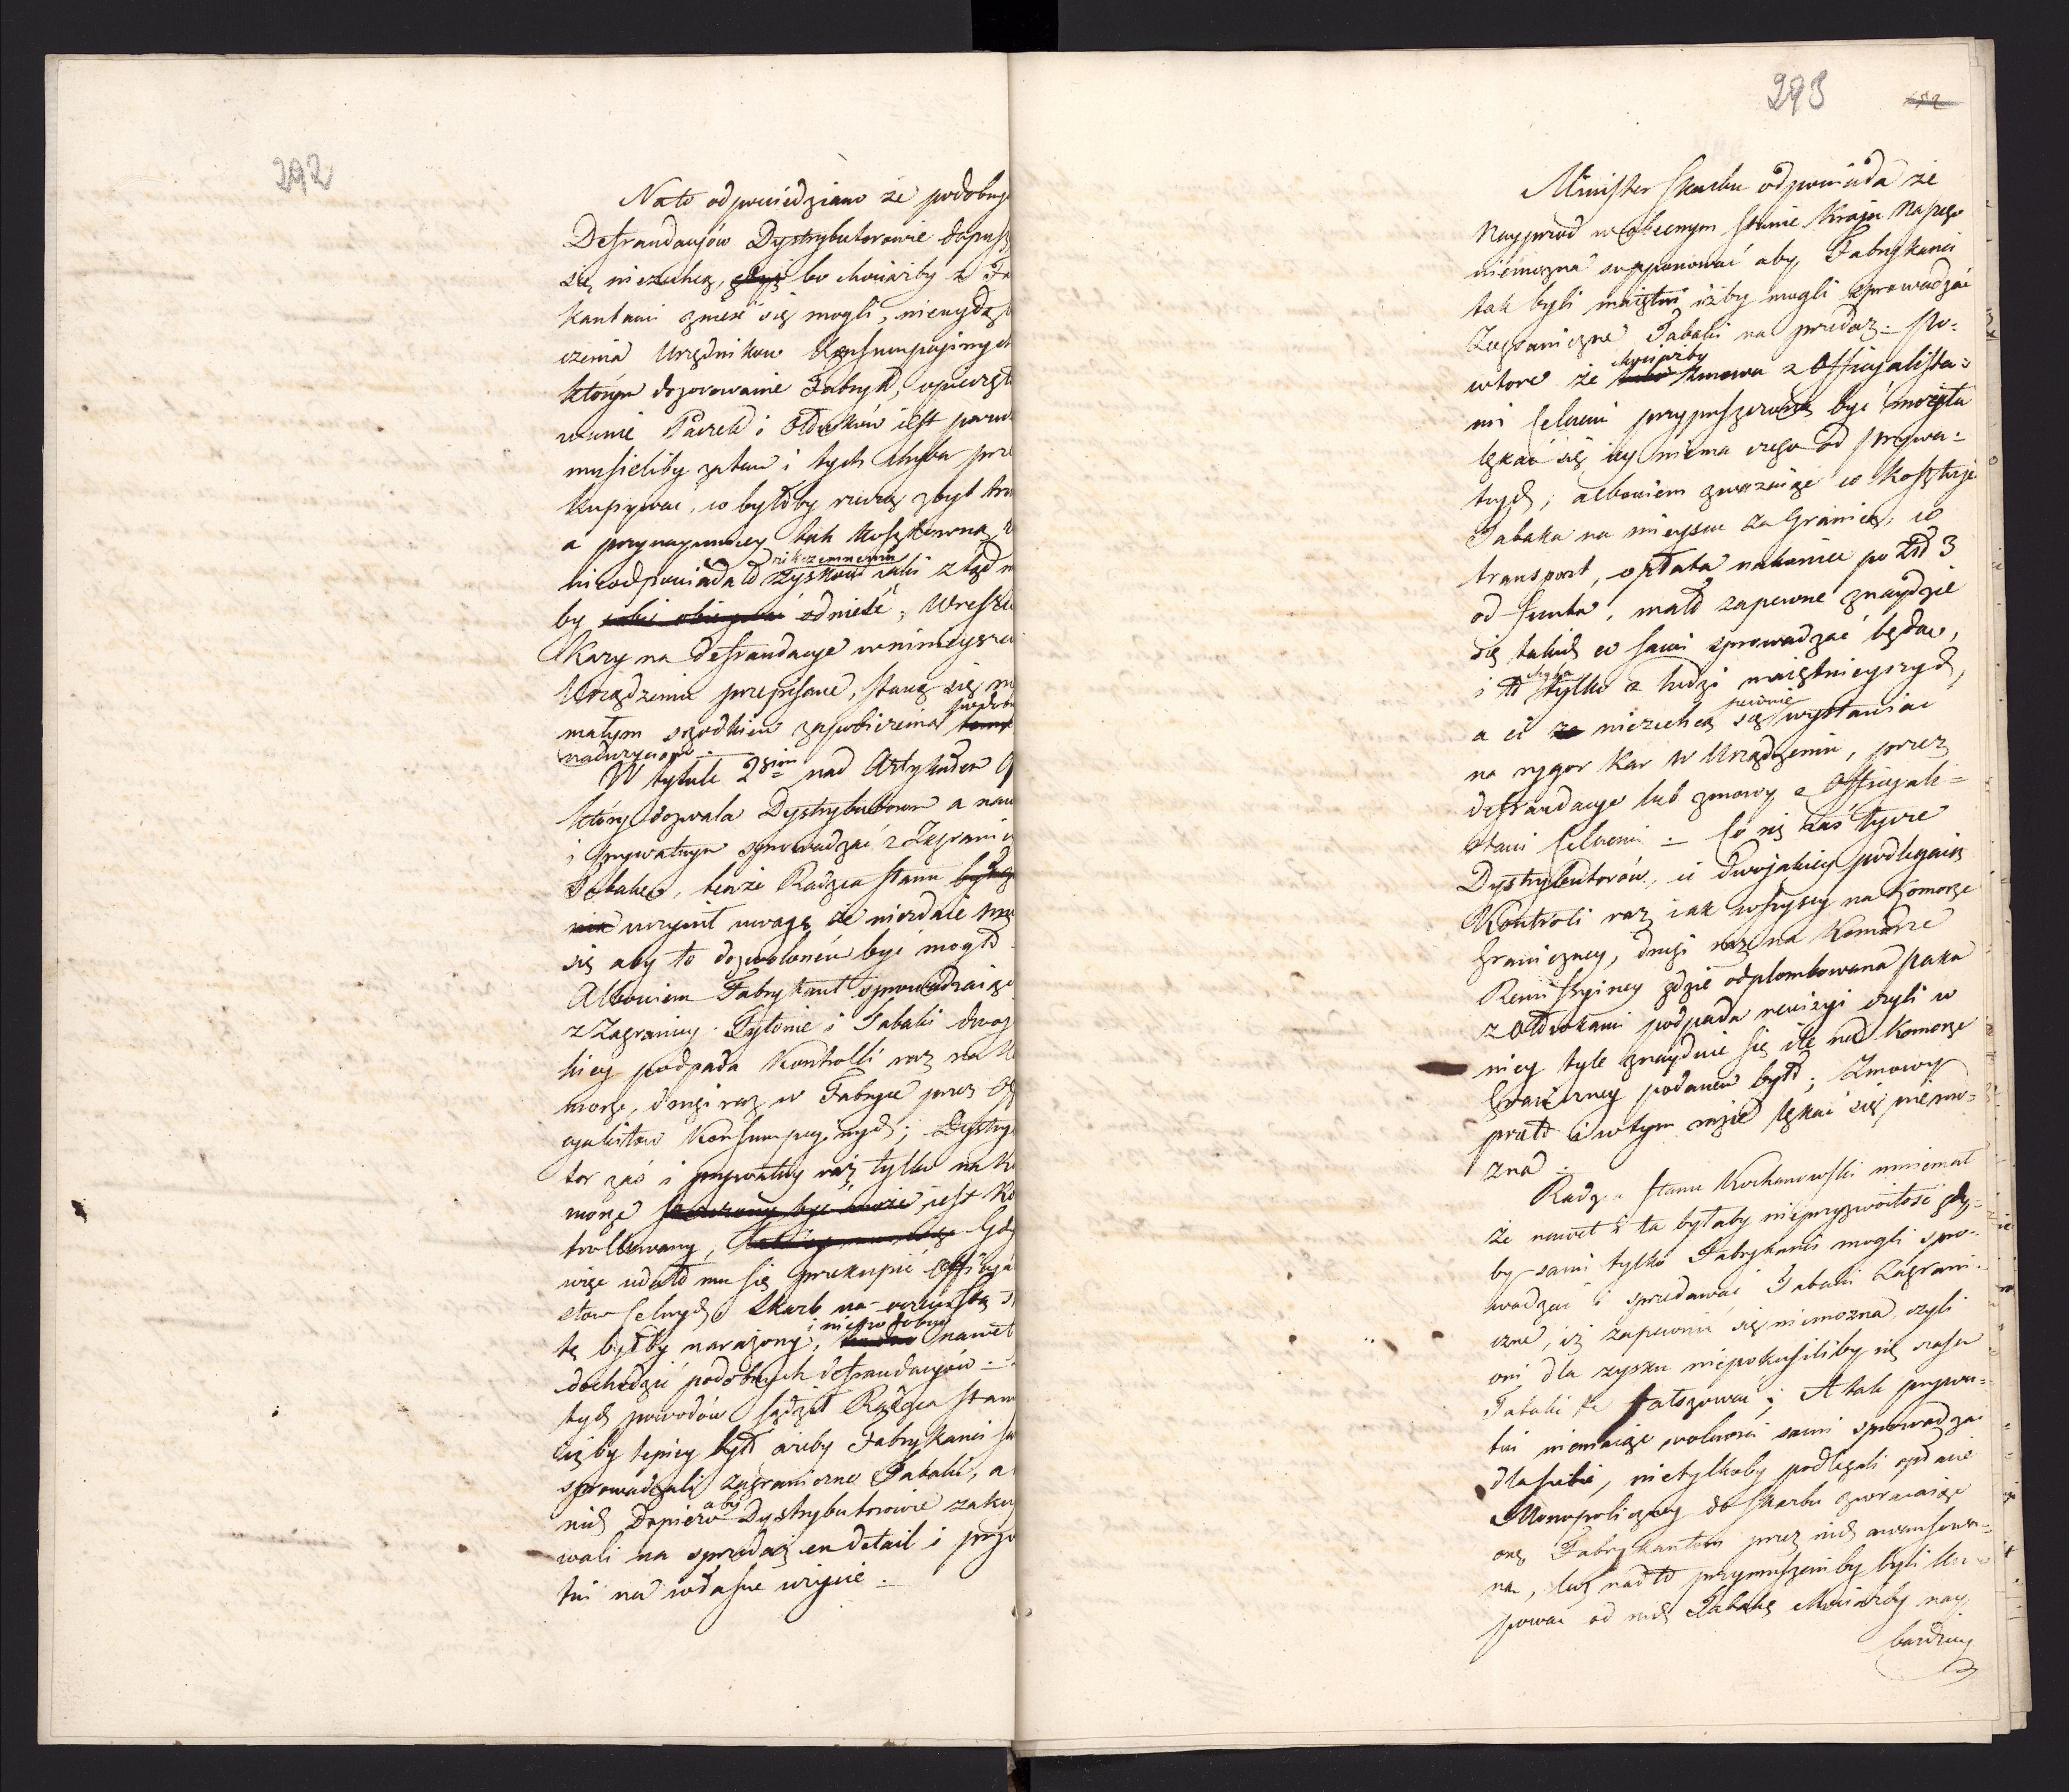 292
Nato odpowiedziano że podobnyc
Defraudacyów Dystrybutorowie dopuśc
się niezechcą, gdyż bo chociażby z Fa
kantami znieść się mogli, nieuydą
czenia Urzędnikow Konsumpcyinych
którym dozorowanie Fabryk, opieczęto
wanie Paczek i Ołtuków iest poruc
musieliby zatem i tych chyba prze
kupywać, co byłoby rzeczą zbyt tru
a przynaymniey tak kosztowną,
nieodpowiadało nikczemnemu zyskowi iaki z tąd m
by odnieść; Wreszcie
Kary na defraudacye w ninieyszem
Urządzeniu przepisane, staną się nie
małym szrodkiem zapobieżenia podobn
nadużyciom. —
W tytule 2gim nad Artykułem
który dozwala Dystrybutorom a naw
i Prywatnym sprowadzać z Zagranicy
Tabakę, tenże Radzca Stanu
uczynił uwagę że niezdaie mu
się aby to dozwolonem być mogło
Albowiem Fabrykant sprowadzaiąc
z Zagranicy Tytonie i Tabaki dwoja
kiey podpada Kontrolli raz na Ko
morze, drugi raz w Fabryce przez Off
cyalistow Konsumpcyinych; Dystrybu
tor zaś i prywatny raz tylko na Ko
morze iest Ko
trollowany, Gdy
więc udało mu się przekupić Officyali
stow Celnych, Skarb na oczywistą s
tę byłby narażony, i niepodobna nawet
dochodzić podobnych defraudacyów. —
tych powodów sądził Radzca Stanu
iż by lepiey było ażeby Fabrykanci sa
sprowadzali zagraniczne Tabaki, a
nich dopiero aby Dystrybutorowie zaku
wali na sprzedaż en detail i prywa
tni na własne użycie. —
293
Minister Skarbu odpowiada że
Nayprzod w obecnym stanie Kraju Naszego
niemożna supponować aby Fabrykanci
tak byli maiętni iżby mogli sprowadzać
Zagraniczne Tabaki na przedaż. — Po=
wtore że chociażby zmowa z Officyalista=
mi Celnemi przypuszczoną być mogła
lękać się iey niema czego od Prywa=
tnych; albowiem zważaiąc co kosztuje
Tabaka na mieyscu za Granicą, co
transport, opłata nakoniec po Złł 3
od funta, mało zapewne znaydzie
się takich co sami sprowadzać będą,
i to chyba tylko z ludzi maiętnieyszych,
a ci niezechcą się pewnie wystawiać
na rygor kar w Urządzeniu, przez
defraudacye lub zmowy z Officyali=
stami Celnemi. — Co się zaś tycze
Dystrybutorów, ci dwojakiey podlegaią
Kontroli raz iak wszyscy na Komorze
Graniczney, drugi raz na Komorze
Remissyiney gdzie odplombowana paka
z Ołtukami podpada rewizyi czyli w
niey tyle znayduie się ile na Komorze
Graniczney podanem było; Zmowy
przeto i w tym razie lękać się niemo=
żna.
Radzca Stanu Kochanowski mniemał
że nawet ta byłaby nieprzyzwoitość gdy=
by sami tylko Fabrykanci mogli spro=
wadzać i sprzedawać Tabaki Zagrani=
czne, iż zapewnić się niemożna, czyli
oni dla zysku niepokusiliby się czasem
Tabaki te fałszować; A tak prywa=
tni niemaiąc wolności sami sprowadzać
dla siebie, nietylkoby podlegali opłacie
Monopoliczney do Skarbu zwracaiąc
onę Fabrykantom przez nich awansowa=
ną, lecz nadto przymuszeni by byli ku=
pować od nich Tabakę chociażby nay
bardziey